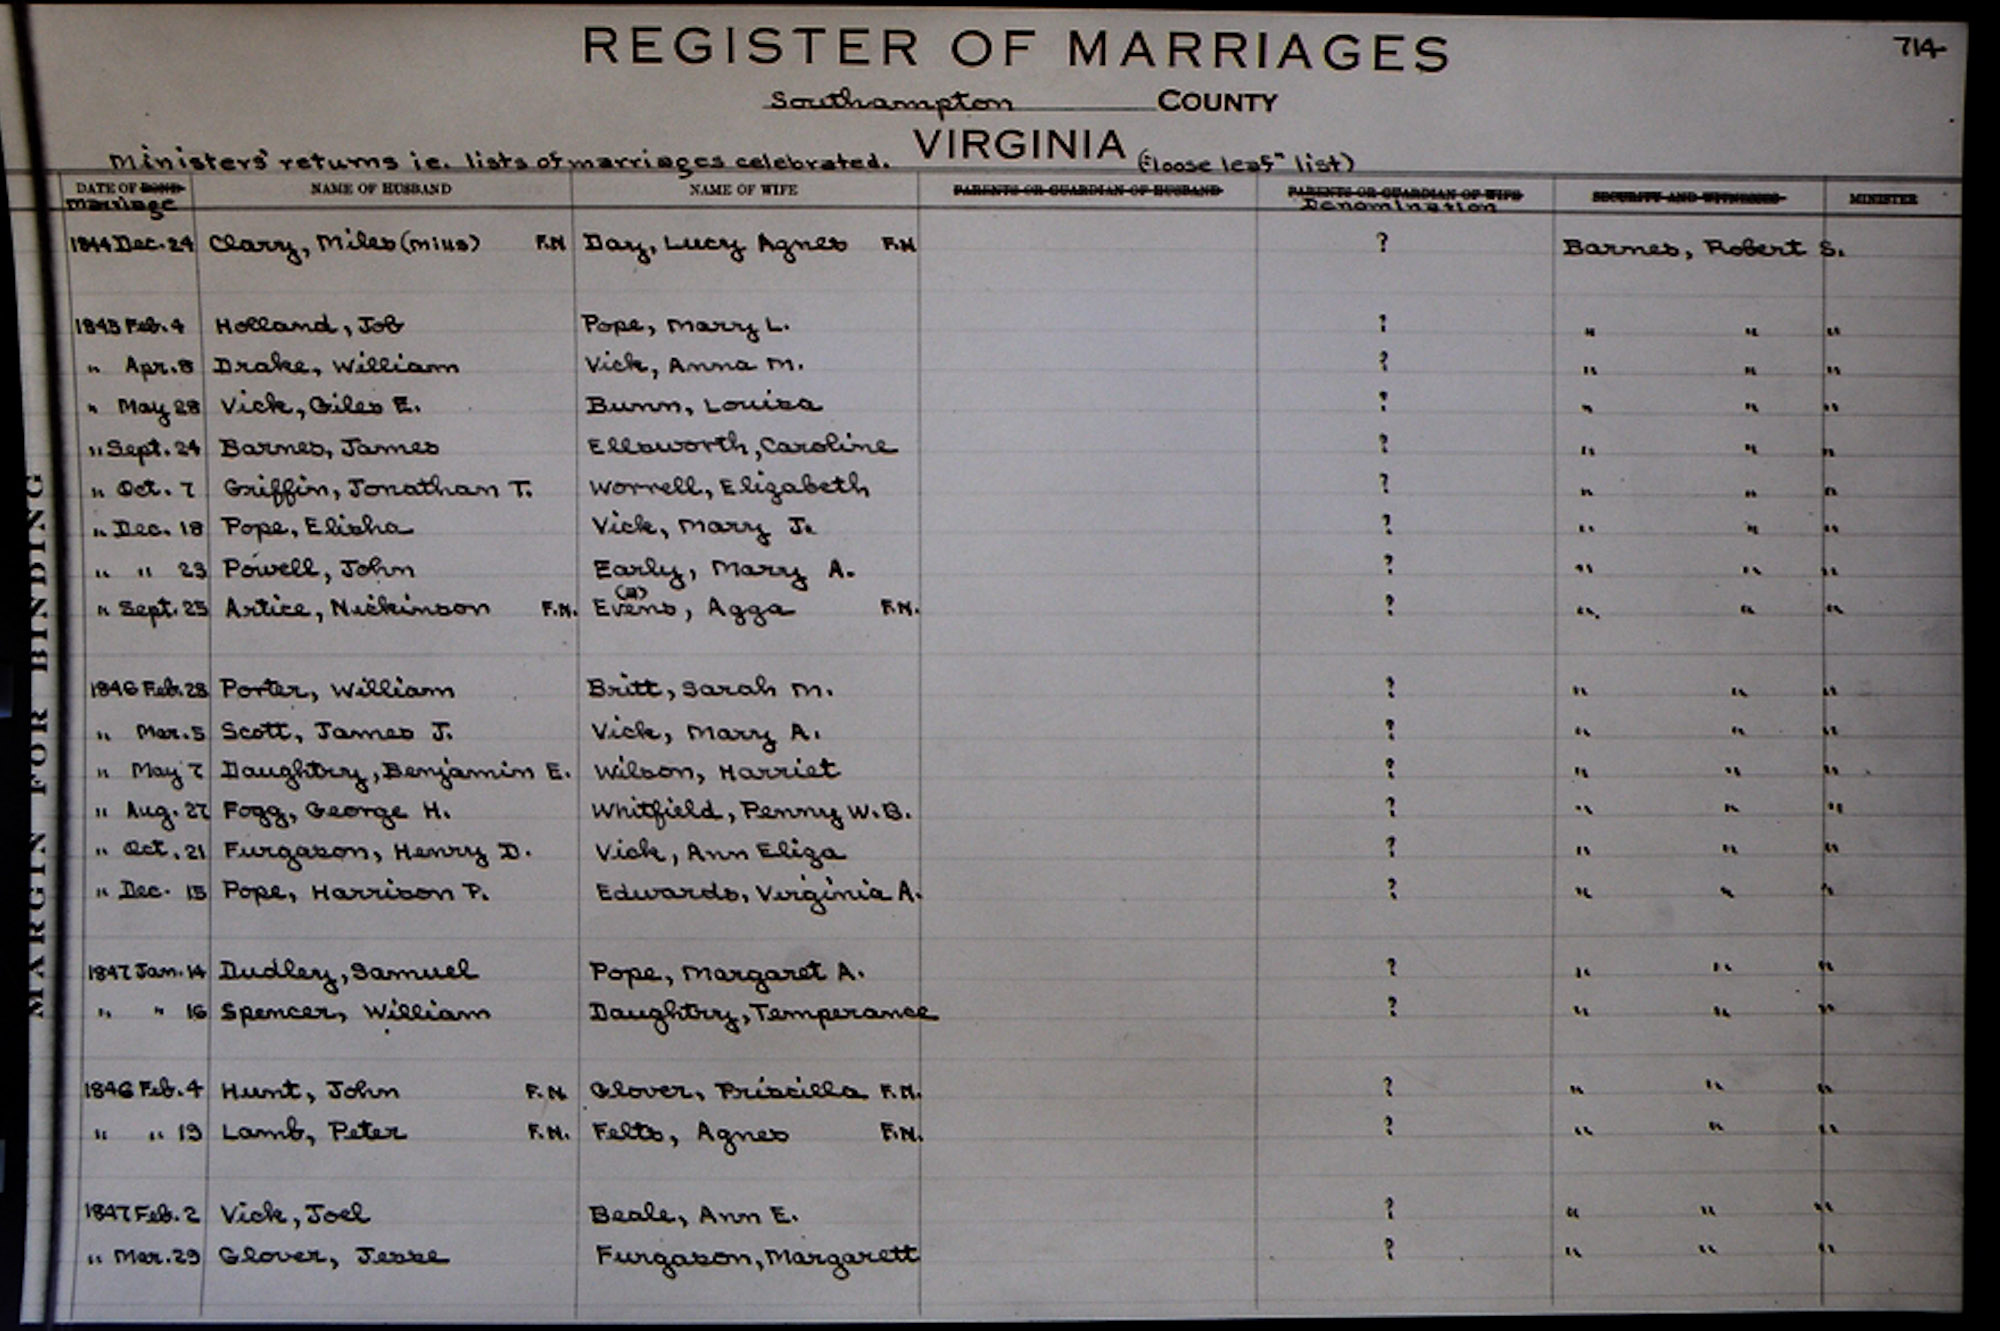 REGISTER OF MARRIAGES 714
Southampton COUNTY
VIRGINIA
Ministers' returns ie. lists of marriages celebrated. ("loose leaf" list)
DATE OF BOND NAME OF HUSBAND NAME OF WIFE PARENTS OR GUARDIAN OF HUSBAND PARENTS OR GUARDIAN OF WIFE SECURITY AND WITNESSES MINISTER
Marriage Denomination
1844 Dec. 24 Clary, Miles (Mills) F.N Day, Lucy Agnes F.N ? Barnes, Robert S.
1845 Feb. 4 Holland, Job Pope, Mary L. ? " " "
" Apr. 8 Drake, William Vick, Anna M. ? " " "
" May 28 Vick, Giles E. Bunn, Louisa ? " " "
" Sept. 24 Barnes, James Ellsworth, Caroline ? " " "
" Oct. 7 Griffin, Jonathan T. Worrell, Elizabeth ? " " "
" Dec. 18 Pope, Elisha Vick, Mary J. ? " " "
" " 23 Powell, John Early, Mary A. ? " " "
" Sept. 25 Artice, Nickinson F.N. Evens, (a) Agga F.N. ? " " "
1846 Feb. 28 Porter, William Britt, Sarah M. ? " " "
" Mar. 5 Scott, James J. Vick, Mary A. ? " " "
" May 7 Daughtry, Benjamin E. Wilson, Harriet ? " " "
" Aug. 27 Fogg, George H. Whitfield, Penny W. B. ? " " "
" Oct. 21 Furgason, Henry D. Vick, Ann Eliza ? " " "
" Dec. 15 Pope, Harrison P. Edwards, Virginia A. ? " " "
1847 Jan. 14 Dudley, Samuel Pope, Margaret A. ? " " "
" " 16 Spencer, William Daughtry, Temperance ? " " "
1846 Feb. 4 Hunt, John F.N. Glover, Priscilla F.N. ? " " "
" " 19 Lamb, Peter F.N. Felts, Agnes F.N. ? " " "
1847 Feb. 2 Vick, Joel Beale, Ann E. ? " " "
" Mar. 29 Glover, Jesse Furgason, Margarett ? " " "
MARGIN FOR BINDING